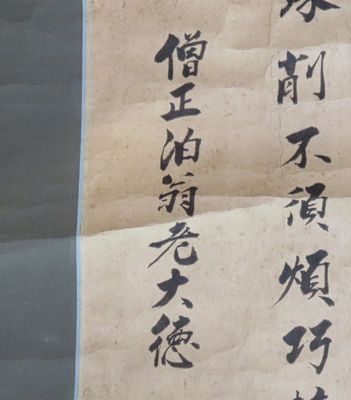 削不須煩巧
僧正泊翁老大徳